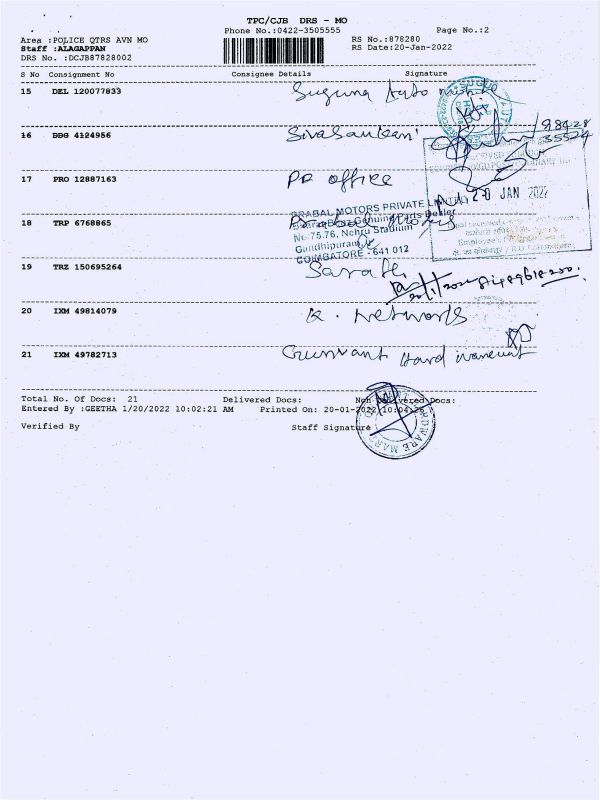 TPC/CJB DRS - MO
Phone No.:0422-3505555 Page No.:2
Area :POLICE QTRS AVN MO RS No.:878280
Staff :ALAGAPPAN RS Date:20-Jan-2022
DRS No. :DCJB87828002
S No Consignment No Consignee Details Signature
15 DEL 120077833 Suguna Auto
16 DDG 4124956 Sivasankari 98428
35524
17 PRO 12887163 PR office
20 JAN 2022
PRABAL MOTORS PRIVATE LIMITED
18 TRP 6768865
Bharat Benz Genuine Parts Dealer
No.75.76, Nehru Stadium
Gandhipuram,
COIMBATORE - 641 012
19 TRZ 150695264 Sarath
20 IXM 49814079 R. Networks
21 IXM 49782713 Gunvant Hardware
Total No. Of Docs: 21 Delivered Docs: Non Delivered Docs:
Entered By :GEETHA 1/20/2022 10:02:21 AM Printed On: 20-01-2022 10:04:26
Verified By Staff Signature